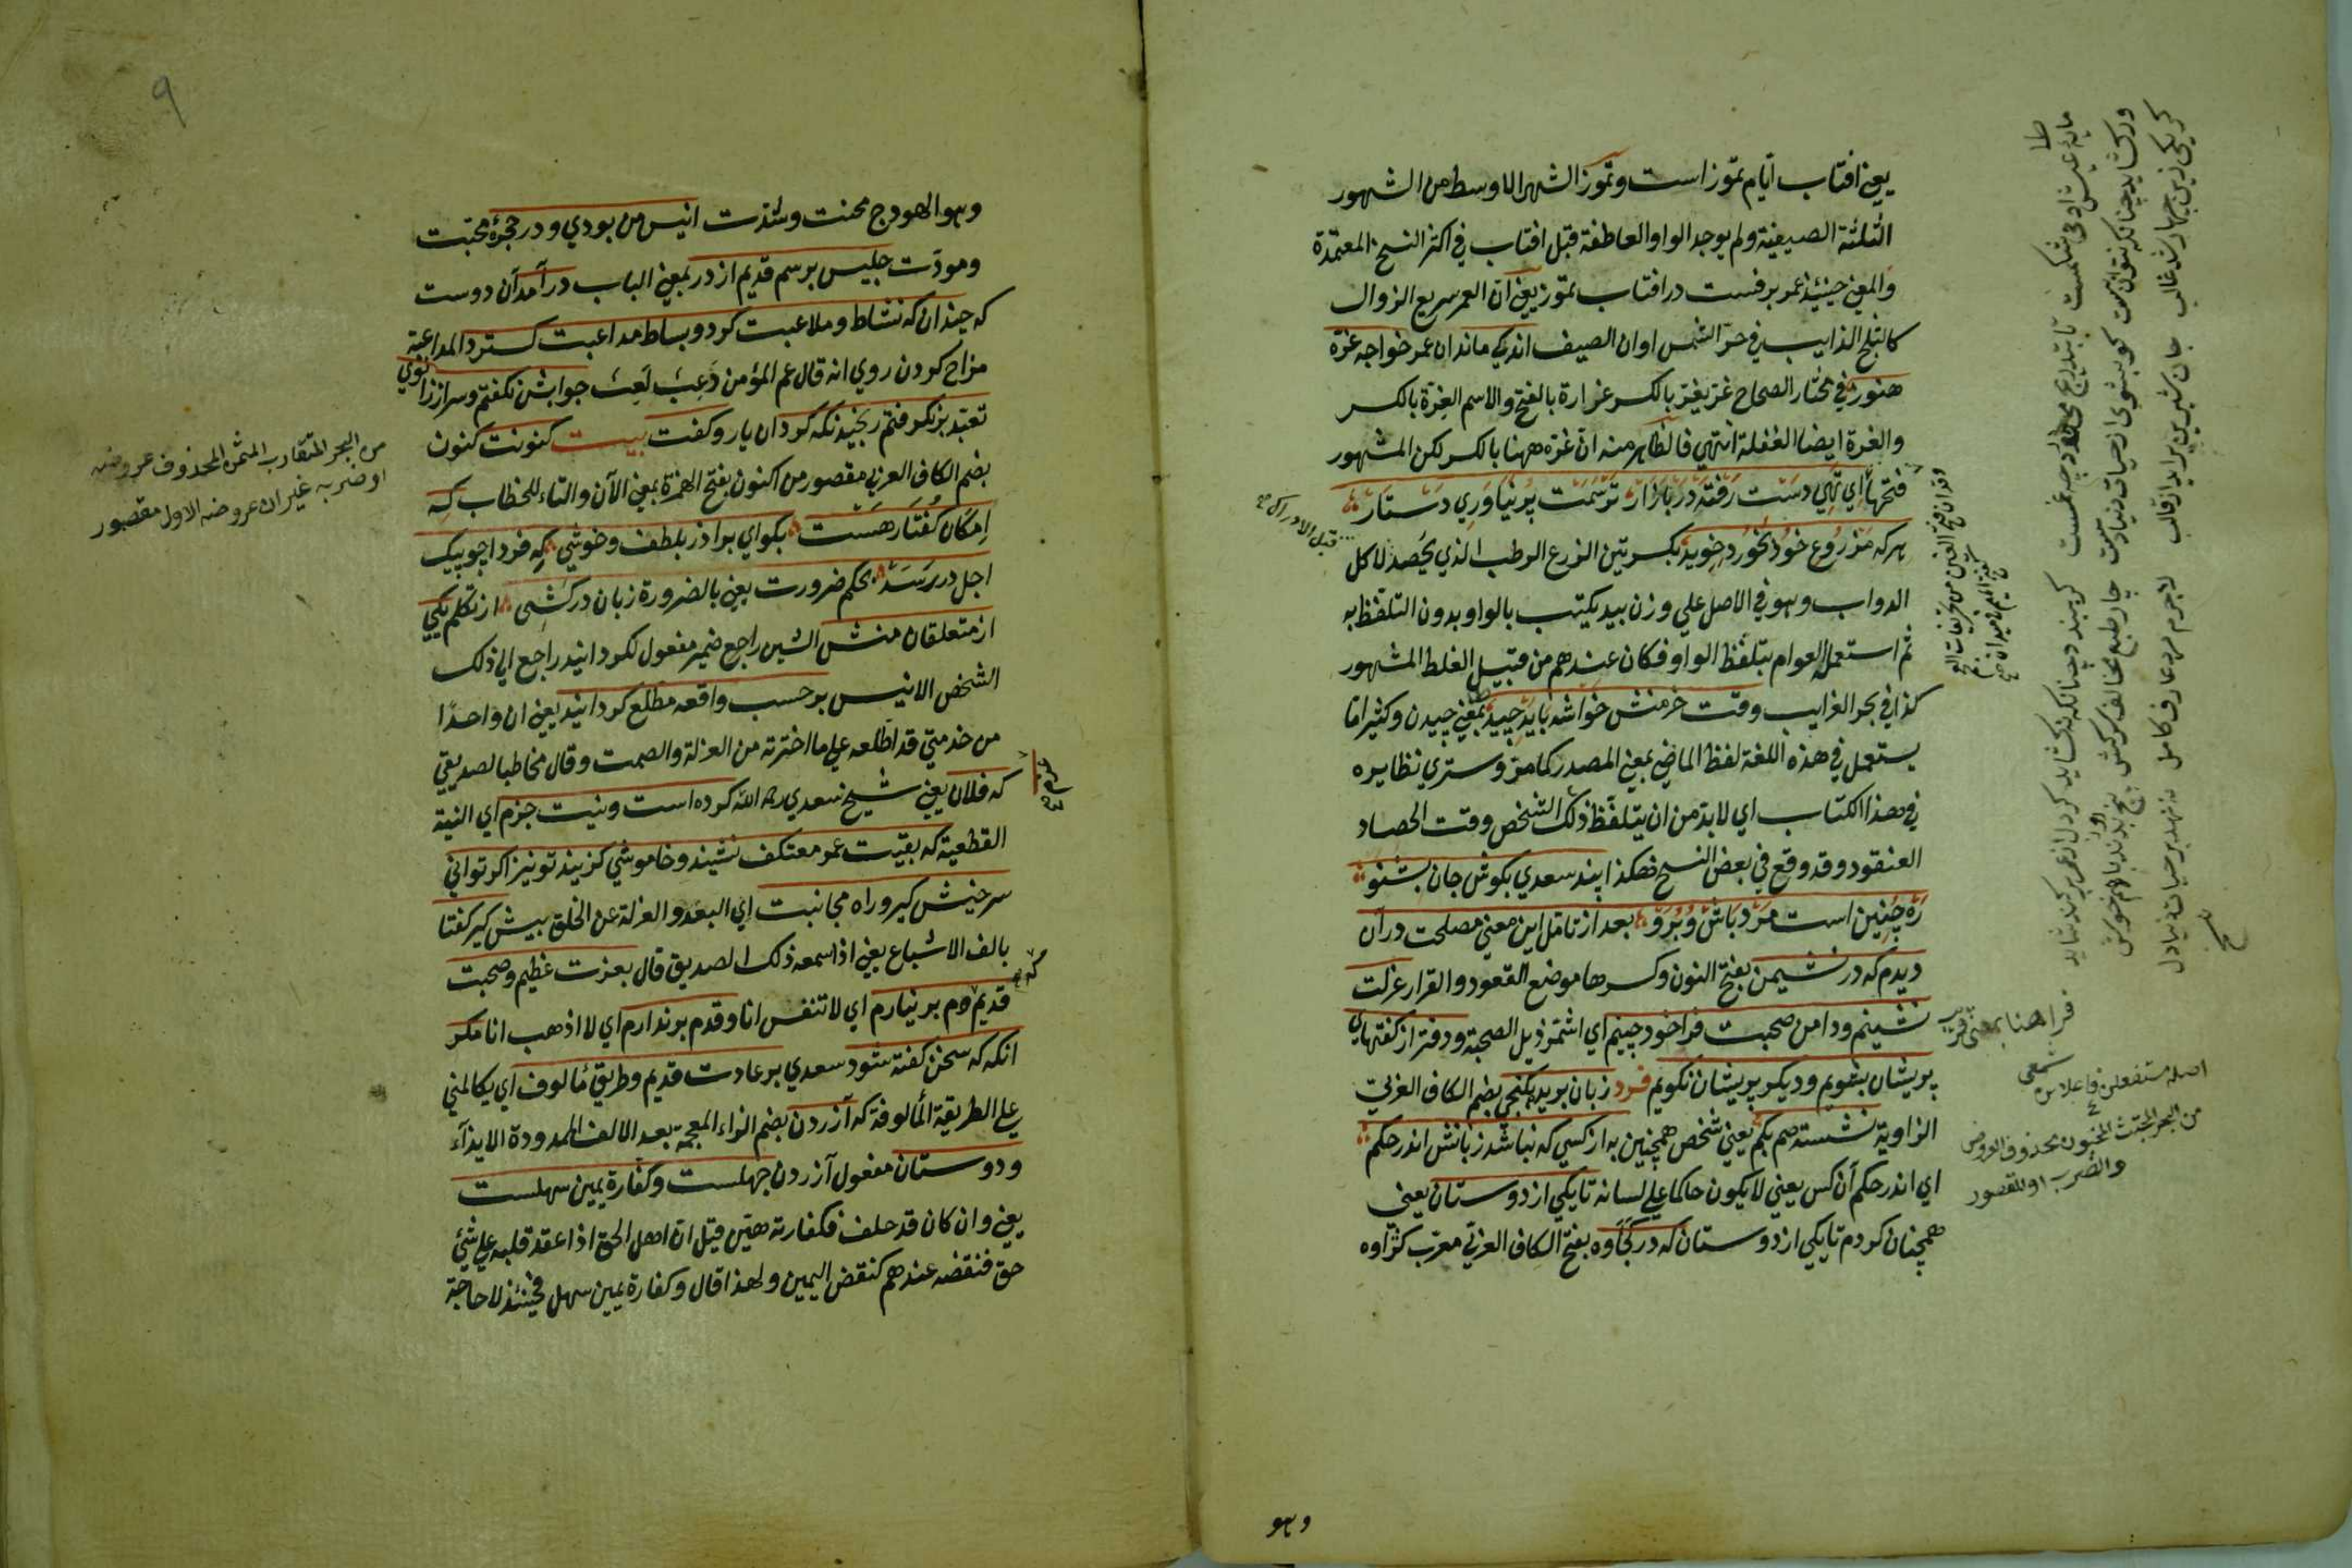 يعني افتاب ايام تموز است و تموز الشهر الاوسط من الشهور
الثلثة الصيفية ولم يوجد الواو العاطفة قبل افتاب في اكثر النسخ المعتمدة
والمعني حينئذ عمر برفست در افتاب تموز يعني ان العمر سريع الزوال
كالثلج الذايب في حر الشمس اوان الصيف اندكي ماند ان عمر خواجه غره
هنوز في مختار الصحاح غر يغر بالكسر غرارة بالفتح والاسم الغرة بالكسر
والغرة ايضا الغفلة انتهي فالظاهر منه ان غره ههنا بالكسر لكن المشهور
فتحها اي تهي دست رفته در بازار ترسمت پر نياوري دستار
هر كه مزروع خود بخورد خويد بكسرتين الزرع الرطب الذي يحصد لاكل
الدواب وهو في الاصل علي وزن بيد يكتب بالواو بدون التلفظ به
ثم استعمل العوام بتلفظ الواو فكان عندهم من قبيل الغلط المشهور
كذا في بحر الغرايب وقت خرمنش خواشه بايد چيد بمعني چيدن وكثيرا ما
يستعمل في هذه اللغة لفظ الماضي بمعني المصدر كما مر وستري نظايره
في هذا الكتاب اي لابد من ان يتلفظ ذلك الشخص وقت الحصاد
العنقود وقد وقع في بعض النسخ هكذا پند سعدي بكوش جان بشنو
ره چنين است مرد باش و برو بعد از تامل اين معني مصلحت در آن
ديدم كه در نشيمن بفتح النون وكسرها موضع القعود والقرار عزلت
نشينم ودامن صحبت فراخود چينم اي اشمر ذيل الصحبة ودفتر از كفتهاي
پريشان بشويم وديكر پريشان نكويم فرد زبان بريده بكنجي بضم الكاف العربي
الزاوية نشسته صم بكم يعني شخص همچنين به از كسي كه نباشد زبانش اندر حكم
اي اندر حكم آن كس يعني لا يكون حاكما علي لسانه تا يكي از دوستان يعني
همچنان كردم تا يكي از دوستان كه در كجاوه بفتح الكاف العربي معرب كژاوه
وهو
فرا هنا بمعني قرب
شمعي
اصله مستفعلن فاعلاتن
من البحر المجتث المخبون محذوف العروض
والضرب او المقصور
٩
وهو الهودج محنت وشدت انيس من بودي ودر حجرة محبت
ومودت جليس برسم قديم از در بمعني الباب در آمد آن دوست
كه چندان كه نشاط وملاعبت كرد وبساط مداعبت كسترد المداعبة
مزاح كردن روي انه قال عم المؤمن دعب لعب جوابش نكفتم وسر از زانوي
تعبد بر نكرفتم رنجيد نكه كرد ان يار وكفت بيت كنونت كنون
بضم الكاف العربي مقصور من اكنون بفتح الهمزة بمعني الآن والتاء للخطاب كه
امكان كفتار هست بكواي برادر بلطف وخوشي كه فردا چو پيك
اجل در رسد بحكم ضرورت يعني بالضرورة زبان دركشي از تكلم يكي
از متعلقان منش الشين راجع ضمير مفعول لكردانيد راجع الي ذلك
الشخص الانيس بر حسب واقعه مطلع كردانيد يعني ان واحدا
من خدمتي قد اطلعه علي ما اخترته من العزلة والصمت وقال مخاطبا لصديقي
كه فلان يعني شيخ سعدي رحمه الله كرده است ونيت جزم اي النية
القطعية كه بقيت عمر معتكف نشيند وخاموشي كزيند تو نيز اكر تواني
سر خيش كير وراه مجانبت اي البعد والعزلة عن الخلق بيش كير كفتا
بالف الاشباع يعني اذا سمعه ذلك الصديق قال بعزت عظيم وصحبت
قديم كه دم بر نيارم اي لا تنفس انا وقدم بر ندارم اي لا اذهب انا مكر
انكه كه سخن كفته شود سعدي بر عادت قديم وطريق مألوف اي يكالمني
علي الطريقة المألوفة كه آزردن بضم الزاء المعجمة بعد الالف الممدودة الايذاء
ودوستان مفعول آزردن جهلست وكفارة يمين سهلست
يعني وان كان قد حلف فكفارته هين قيل ان اهل الحق اذا عقد قلبه علي شئ
حق فنقضه عندهم كنقض اليمين ولهذا قال وكفارة يمين سهل فحينئذ لا حاجة
من البحر المتقارب المثمن المحذوف عروضه
او ضربه غير ان عروضه الاول مقصور